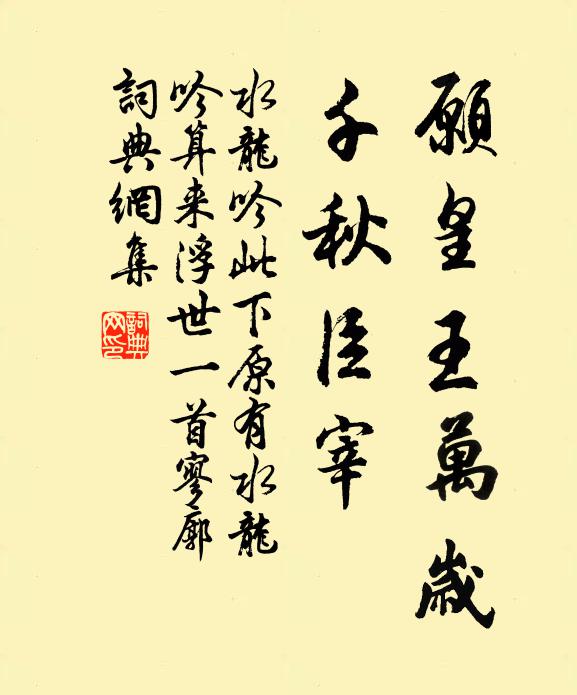 願皇王萬歲
千秋臣宰
水龍吟此下原有水龍
吟算来浮世一首寥廓
詞典網集
詞典网印